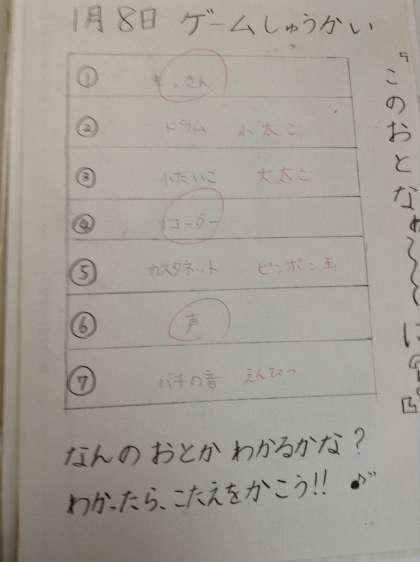 1月8日 ゲームしゅうかい
① もっきん
② ドラム 小太こ
③ 小だいこ 大太こ
④ リコーダー
⑤ カスタネット ピンポン玉
⑥ 声
⑦ バチの音 えんぴつ
なんの おとか わかるかな？
わかったら、こたえをかこう!! ♪
『このおとなぁ〜に？』